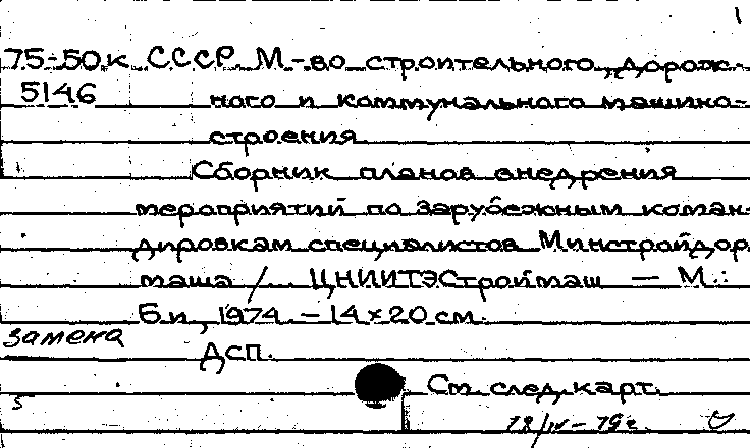 1
75-50к СССР. М-во строительного, дорож-
5146 ного и коммунального машино-
строения
Сборник планов внедрения
мероприятий по зарубежным коман-
дировкам специалистов Минстройдор
маша /... ЦНИИТЭСтроймаш — М.:
Б.и., 1974. - 14×20 см.
замена
ДСП.
См. след. карт.
5